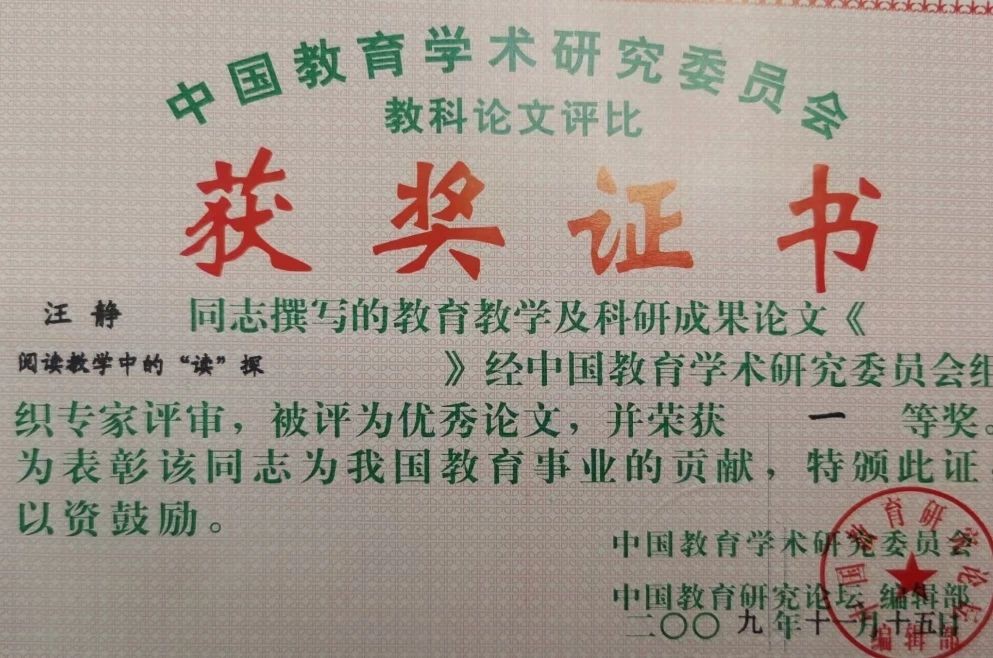 中国教育学术研究委员会
教科论文评比
获奖证书
汪静 同志撰写的教育教学及科研成果论文《
阅读教学中的“读”探 》经中国教育学术研究委员会组
织专家评审，被评为优秀论文，并荣获 一 等奖。
为表彰该同志为我国教育事业的贡献，特颁此证，
以资鼓励。
中国教育学术研究委员会
中国教育研究论坛 编辑部
二〇〇九年十一月十五日
中国教育研究论坛
编辑部